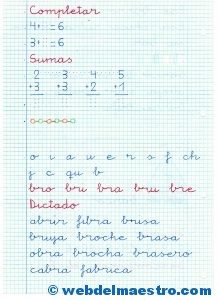 Completar
4+ =6
3+ =6
Sumas
2 3 4 5
+3 +3 +2 +1
o i a u e r s f ch
y c qu b
bro bru bra bru bre
Dictado
abrir fibra brusa
bruja broche brasa
obra brocha brasero
cabra fabrica
© webdelmaestro.com